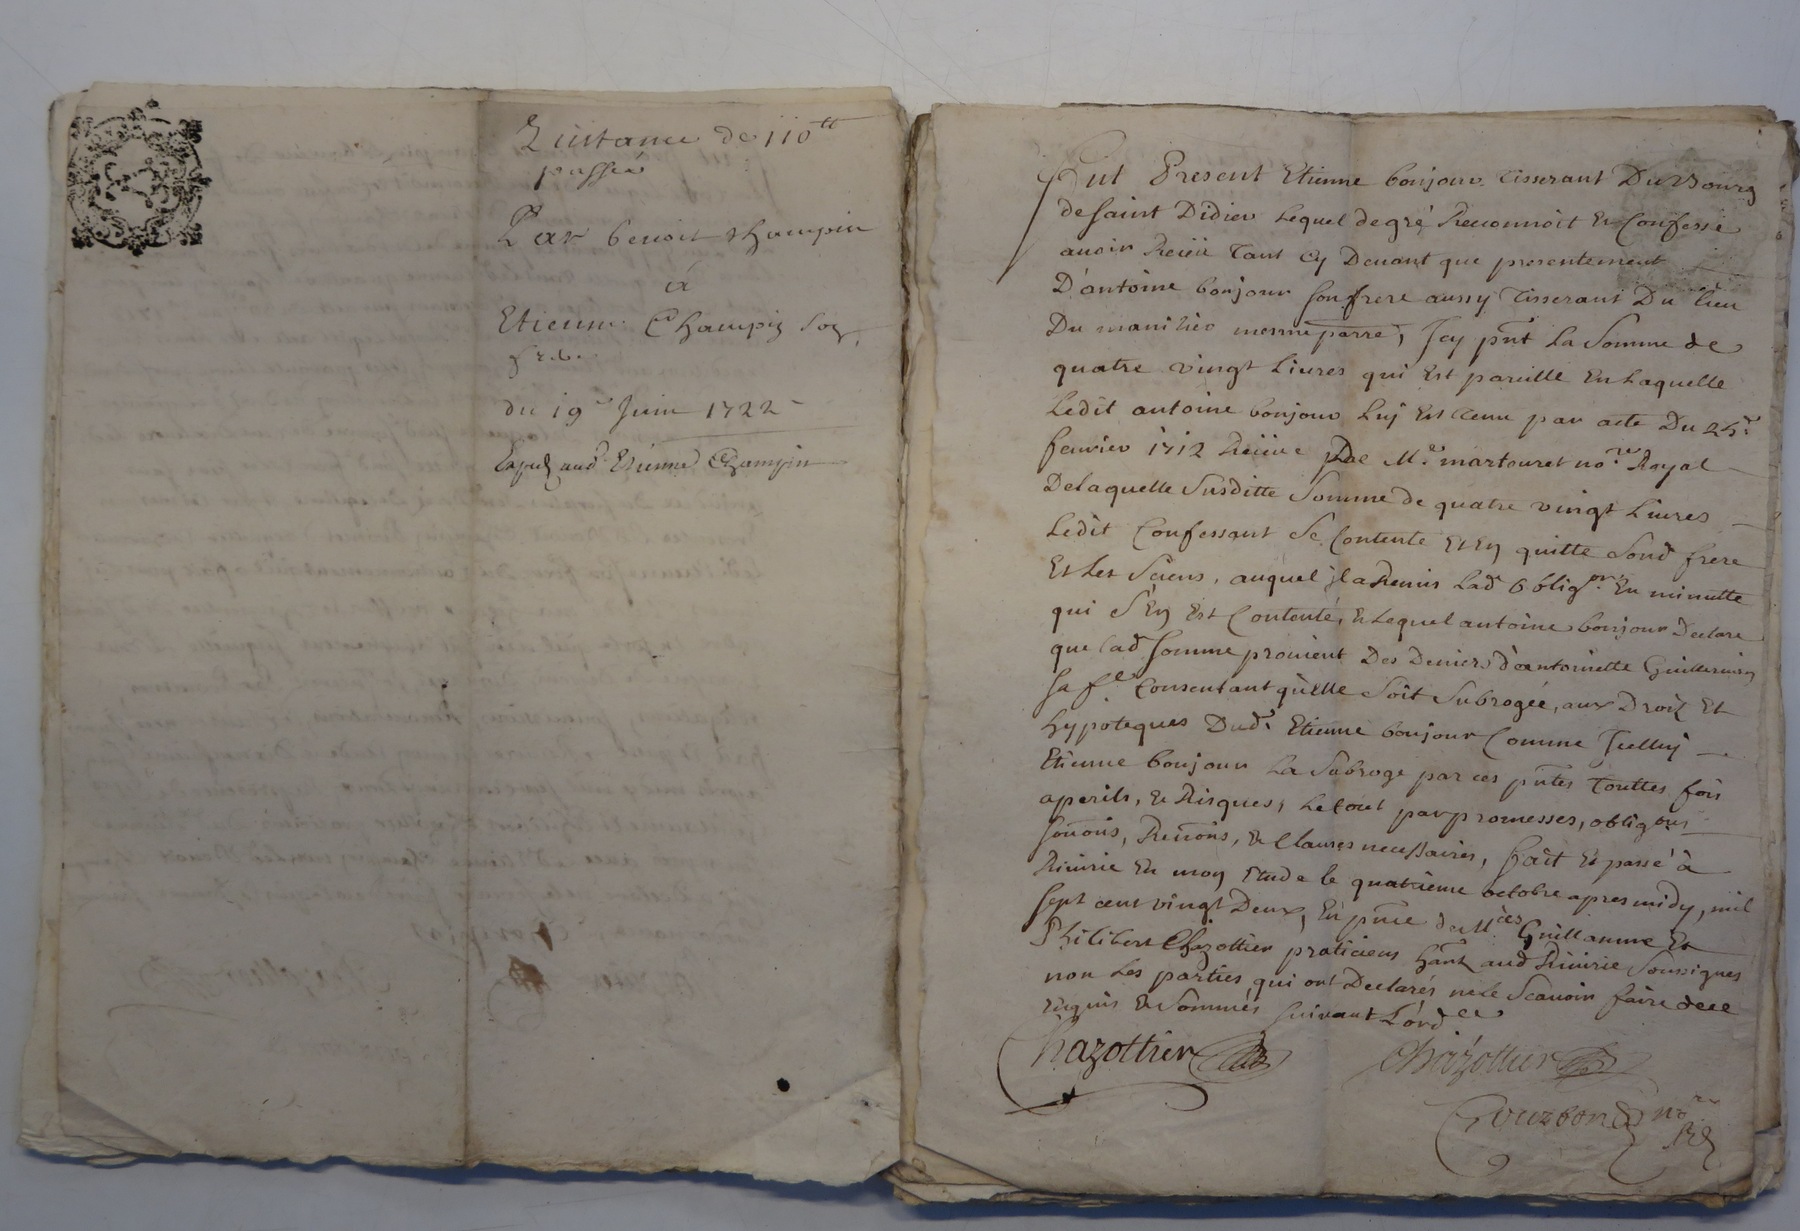 Quittance de 110tt
passée
Par benoit Champin
à
Etienne Champin son
frere
du 19e Juin 1722
Exped aud Etienne Champin
Fut Present Etienne bonjour Tisserant Du Bourg
de saint Didier Lequel de gré Reconnoit Et Confesse
auoir Receü Tant Cy Deuant que presentement
D'antoine bonjour son frere aussy Tisserant Du lieu
Du manilier mesme parre, Icy pnt La Somme de
quatre vingt Liures qui Est pareille En Laquelle
Ledit antoine bonjour Luy Est tenu par acte Du 25e
feurier 1712 Receüe par Me martouret nore Royal
De laquelle Susditte Somme de quatre vingt Liures
Ledit Confessant Se Contente Et En quitte Sond frere
Et Les Siens, auquel il a Remis Lad obligon En minutte
qui S'En Est Contenté, Et Lequel antoine bonjour Declare
que Lad Somme prouient Des Deniers d'antoinette Guillermin
Sa fe Consentant qu'Elle Soit Subrogée, aux Droit Et
hypoteques Dud. Etienne bonjour Comme Icelluy
Etienne bonjour La Subroge par ces pntes Touttes fois
a perils, Et Risques, Le tout par promesses, obligons
Soûons, Renons, Et Clauses necessaires, fait Et passé à
Riuirie En mon Etude le quatrieme octobre apres midy, mil
Sept cent vingt Deux, En pnce de Mces Guillaume Et
Philibert Chazottier praticiens hants aud Riuirie Soussignes
non Les parties, qui ont Declarés ne le Scauoir faire de ce
requis Et Sommés Suiuant L'ordce
Chazottier
Chazottier
Gouzbond nore
Rl